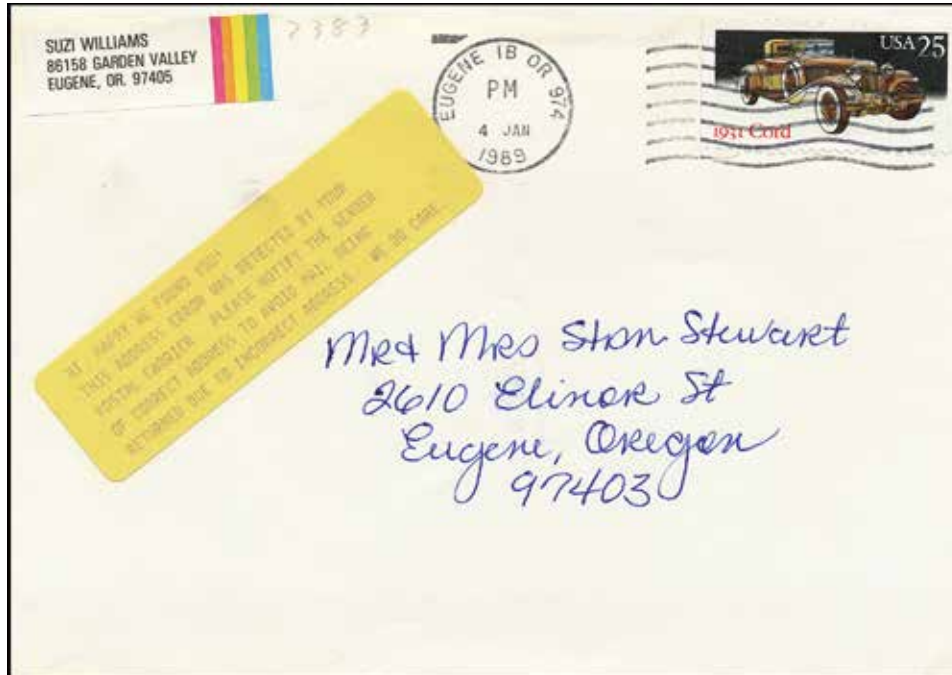 SUZI WILLIAMS
86158 GARDEN VALLEY
EUGENE, OR. 97405
7383
EUGENE 1B OR 974
PM
4 JAN
1989
USA 25
1931 Cord
HI HAPPY WE FOUND YOU*
THIS ADDRESS ERROR WAS DETECTED BY YOUR
POSTAL CARRIER. PLEASE NOTIFY THE SENDER
OF CORRECT ADDRESS TO AVOID MAIL BEING
RETURNED DUE TO INCORRECT ADDRESS. WE DO CARE
Mr & Mrs Stan Stewart
2610 Elinor St
Eugene, Oregon
97403